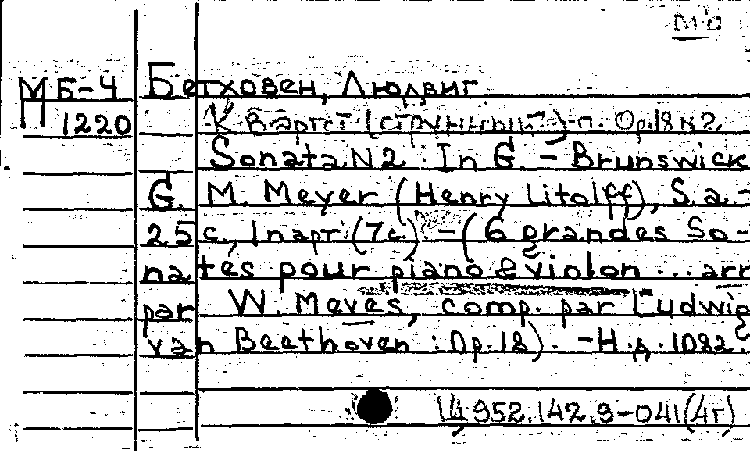 МБ-4 Бетховен, Людвиг.
П 1220 Квартет (струнный) Op.18 N2.
Sonata N2. In G. - Brunswick
G. M. Meyer (Henry Litolff), S.a. -
25 с., 1 парт. (7с.) - (6 grandes So-
nates pour piano & violon ... arr
par W. Meves, comp. par Ludwig
van Beethoven : Op. 18). - Н.д. 1082.
14952.142.9-041(4г)